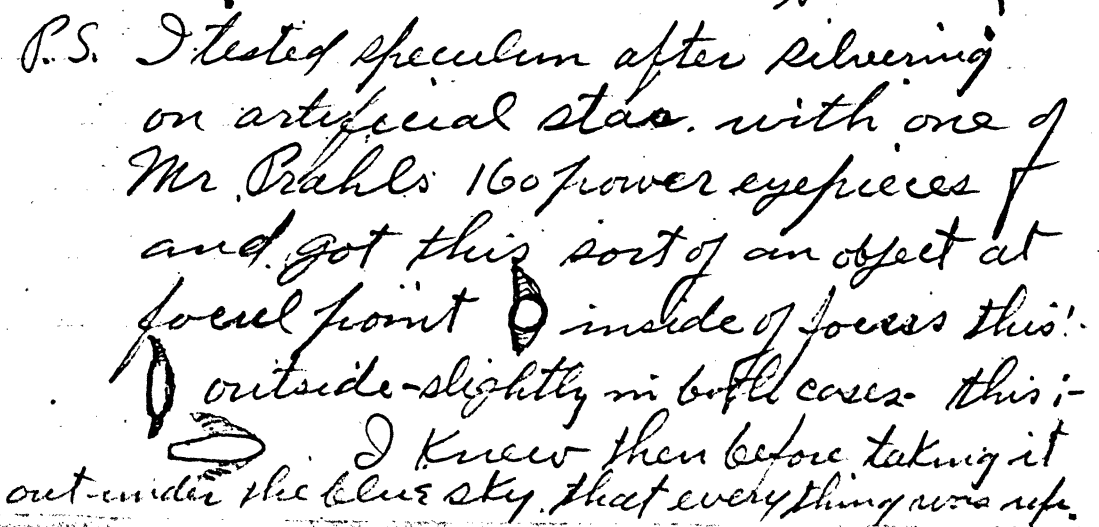 P.S. I tested speculum after silvering
on artificial star. with one of
Mr. Prahls 160 power eyepieces
and got this sort of an object at
focul point inside of focus this:-
outside-slightly in both cases- this:-
I knew then before taking it
out-under the blue sky. that everything was up.